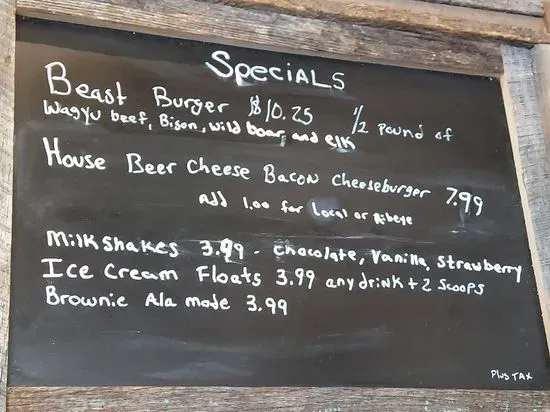 SpeciALS
Beast Burger $10.25 1/2 pound of
Wagyu beef, Bison, wild boar, and elk
House Beer Cheese Bacon Cheeseburger 7.99
Add 1.00 for Local or Ribeye
Milkshakes 3.99 - Chocolate, Vanilla, Strawberry
Ice Cream Floats 3.99 any drink + 2 scoops
Brownie Ala mode 3.99
Plus TAX